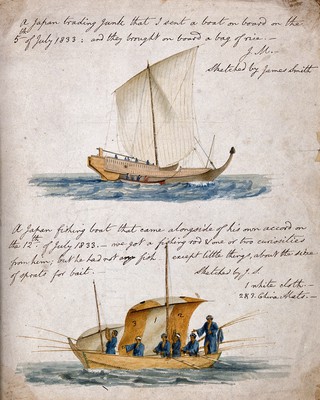 A Japan trading Junk that I sent a boat on board on the
5th of July 1833: and they brought on board a bag of rice.—
J. M.—
Sketched by James Smith
A Japan fishing boat that came alongside of his own accord on
the 12th of July 1833.— we got a fishing rod & one or two curiosities
from him; but he had not any fish except little things, about the size
of sprats for bait.
Sketched by J. S.
1 white cloth.—
2 & 3. China Mats.—
3 1 2